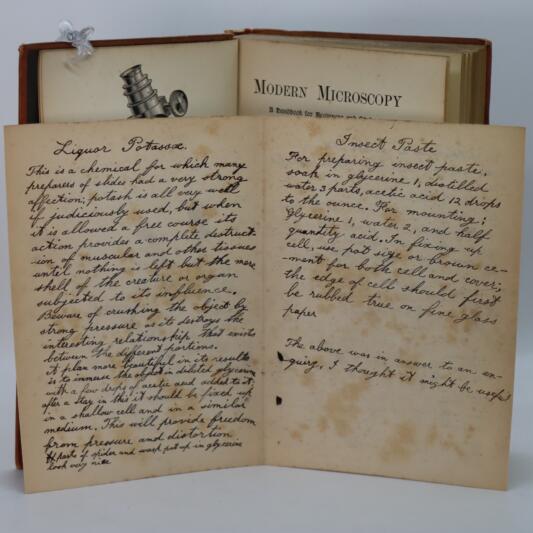 MODERN MICROSCOPY
A Handbook for Beginners and
Liquor Potassæ.
This is a chemical for which many
preparers of slides had a very strong
affection; potash is all very well
if judiciously used, but when
it is allowed a free course its
action provides a complete destruct-
-ion of muscular and other tissues
until nothing is left but the mere
shell of the creature or organ
subjected to its influence.
Beware of crushing the object by
strong pressure as it destroys the
interesting relationship that exists
between the different portions.
A plan more beautiful in its results
is to immerse the object in diluted glycerine
with a few drops of acetic acid added to it;
after a stay in this it should be fixed up
in a shallow cell and in a similar
medium. This will provide freedom
from pressure and distortion
parts of spider and wasp put up in glycerine
look very nice
Insect Paste
For preparing insect paste,
soak in glycerine 1, distilled
water 3 parts, acetic acid 12 drops
to the ounce. For mounting;
Glycerine 1, water 2, and half
quantity acid. In fixing up
cell, use gold size or brown ce-
-ment for both cell and cover;
the edge of cell should first
be rubbed true on fine glass
paper
The above was in answer to an en-
quiry, I thought it might be useful